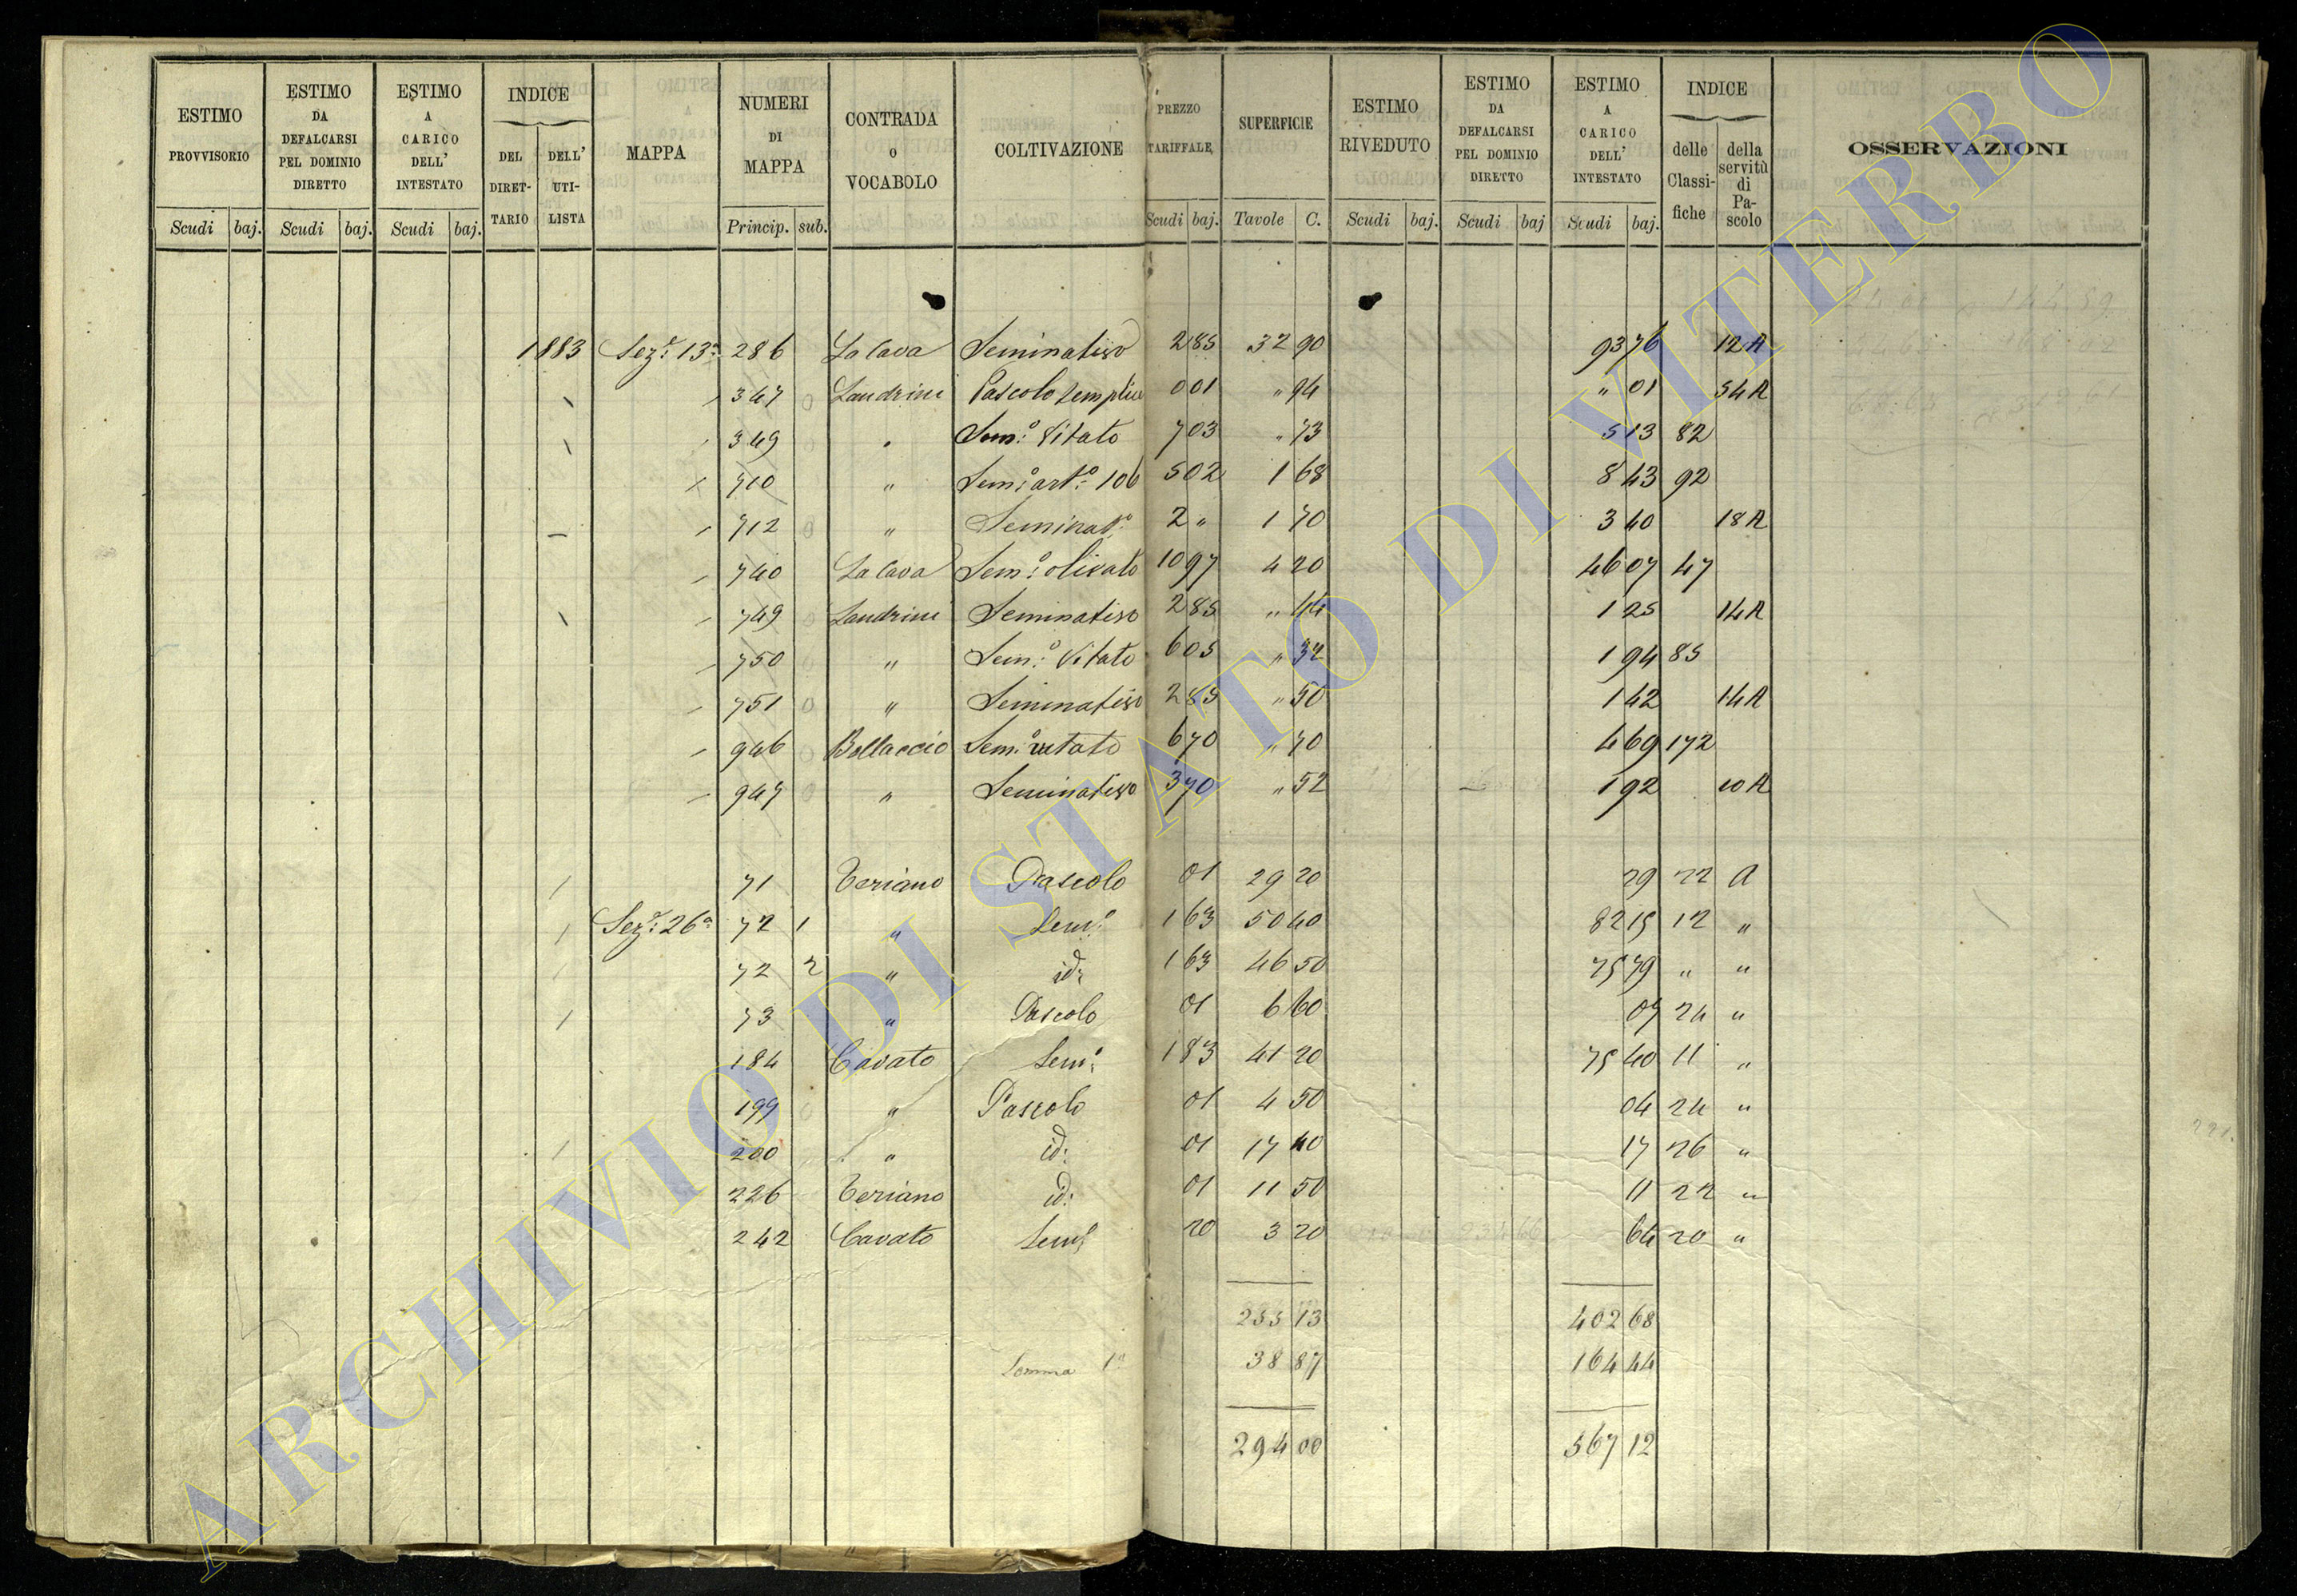 ESTIMO PROVVISORIO Scudi baj.
ESTIMO DA DEFALCARSI PEL DOMINIO DIRETTO Scudi baj.
ESTIMO A CARICO DELL' INTESTATO Scudi baj.
INDICE DEL DIRETTARIO DELL' UTILISTA
MAPPA
NUMERI DI MAPPA Princip. sub.
CONTRADA O VOCABOLO
COLTIVAZIONE
PREZZO TARIFFALE Scudi baj.
SUPERFICIE Tavole C.
ESTIMO RIVEDUTO Scudi baj.
ESTIMO DA DEFALCARSI PEL DOMINIO DIRETTO Scudi baj
ESTIMO A CARICO DELL' INTESTATO Scudi baj.
INDICE delle Classifiche della servitù di Pascolo
OSSERVAZIONI
1883 Sez.e 13a 286 La Cava Seminativo 2 85 32 90 93 76 12 A
347 0 Landrini Pascolo semplice 0 01 " 94 " 01 54 A
349 0 " Sem.o Vitato 7 03 " 73 5 13 82
710 " Sem.o art.o 106 5 02 1 68 8 43 92
712 0 " Seminat.o 2 " 1 70 3 40 18 A
740 La Cava Sem.o olivato 10 97 4 20 46 07 47
749 0 Landrini Seminativo 2 85 " 44 1 25 14 A
750 0 " Sem.o Vitato 6 05 " 32 1 94 85
751 0 " Seminativo 2 85 " 50 1 42 14 A
946 0 Bollaccio Sem.o vitato 6 70 " 70 4 69 172
947 0 " Seminativo 3 70 " 52 1 92 10 A
71 Teriano Pascolo 01 29 20 29 22 A
Sez.e 26a 72 1 " Sem.o 1 63 50 40 82 15 12 "
72 2 " id: 1 63 46 50 75 79 " "
73 " Pascolo 01 6 60 07 24 "
184 Cavato Sem.o 1 83 41 20 75 40 11 "
199 " Pascolo 01 4 50 04 24 "
200 " id: 01 17 40 17 26 "
226 Teriano id: 01 11 50 11 22 "
242 Cavato Sem.o 20 3 20 64 20 "
255 13 402 68
Somma 1a 38 87 164 44
294 00 567 12
ARCHIVIO DI STATO DI VITERBO